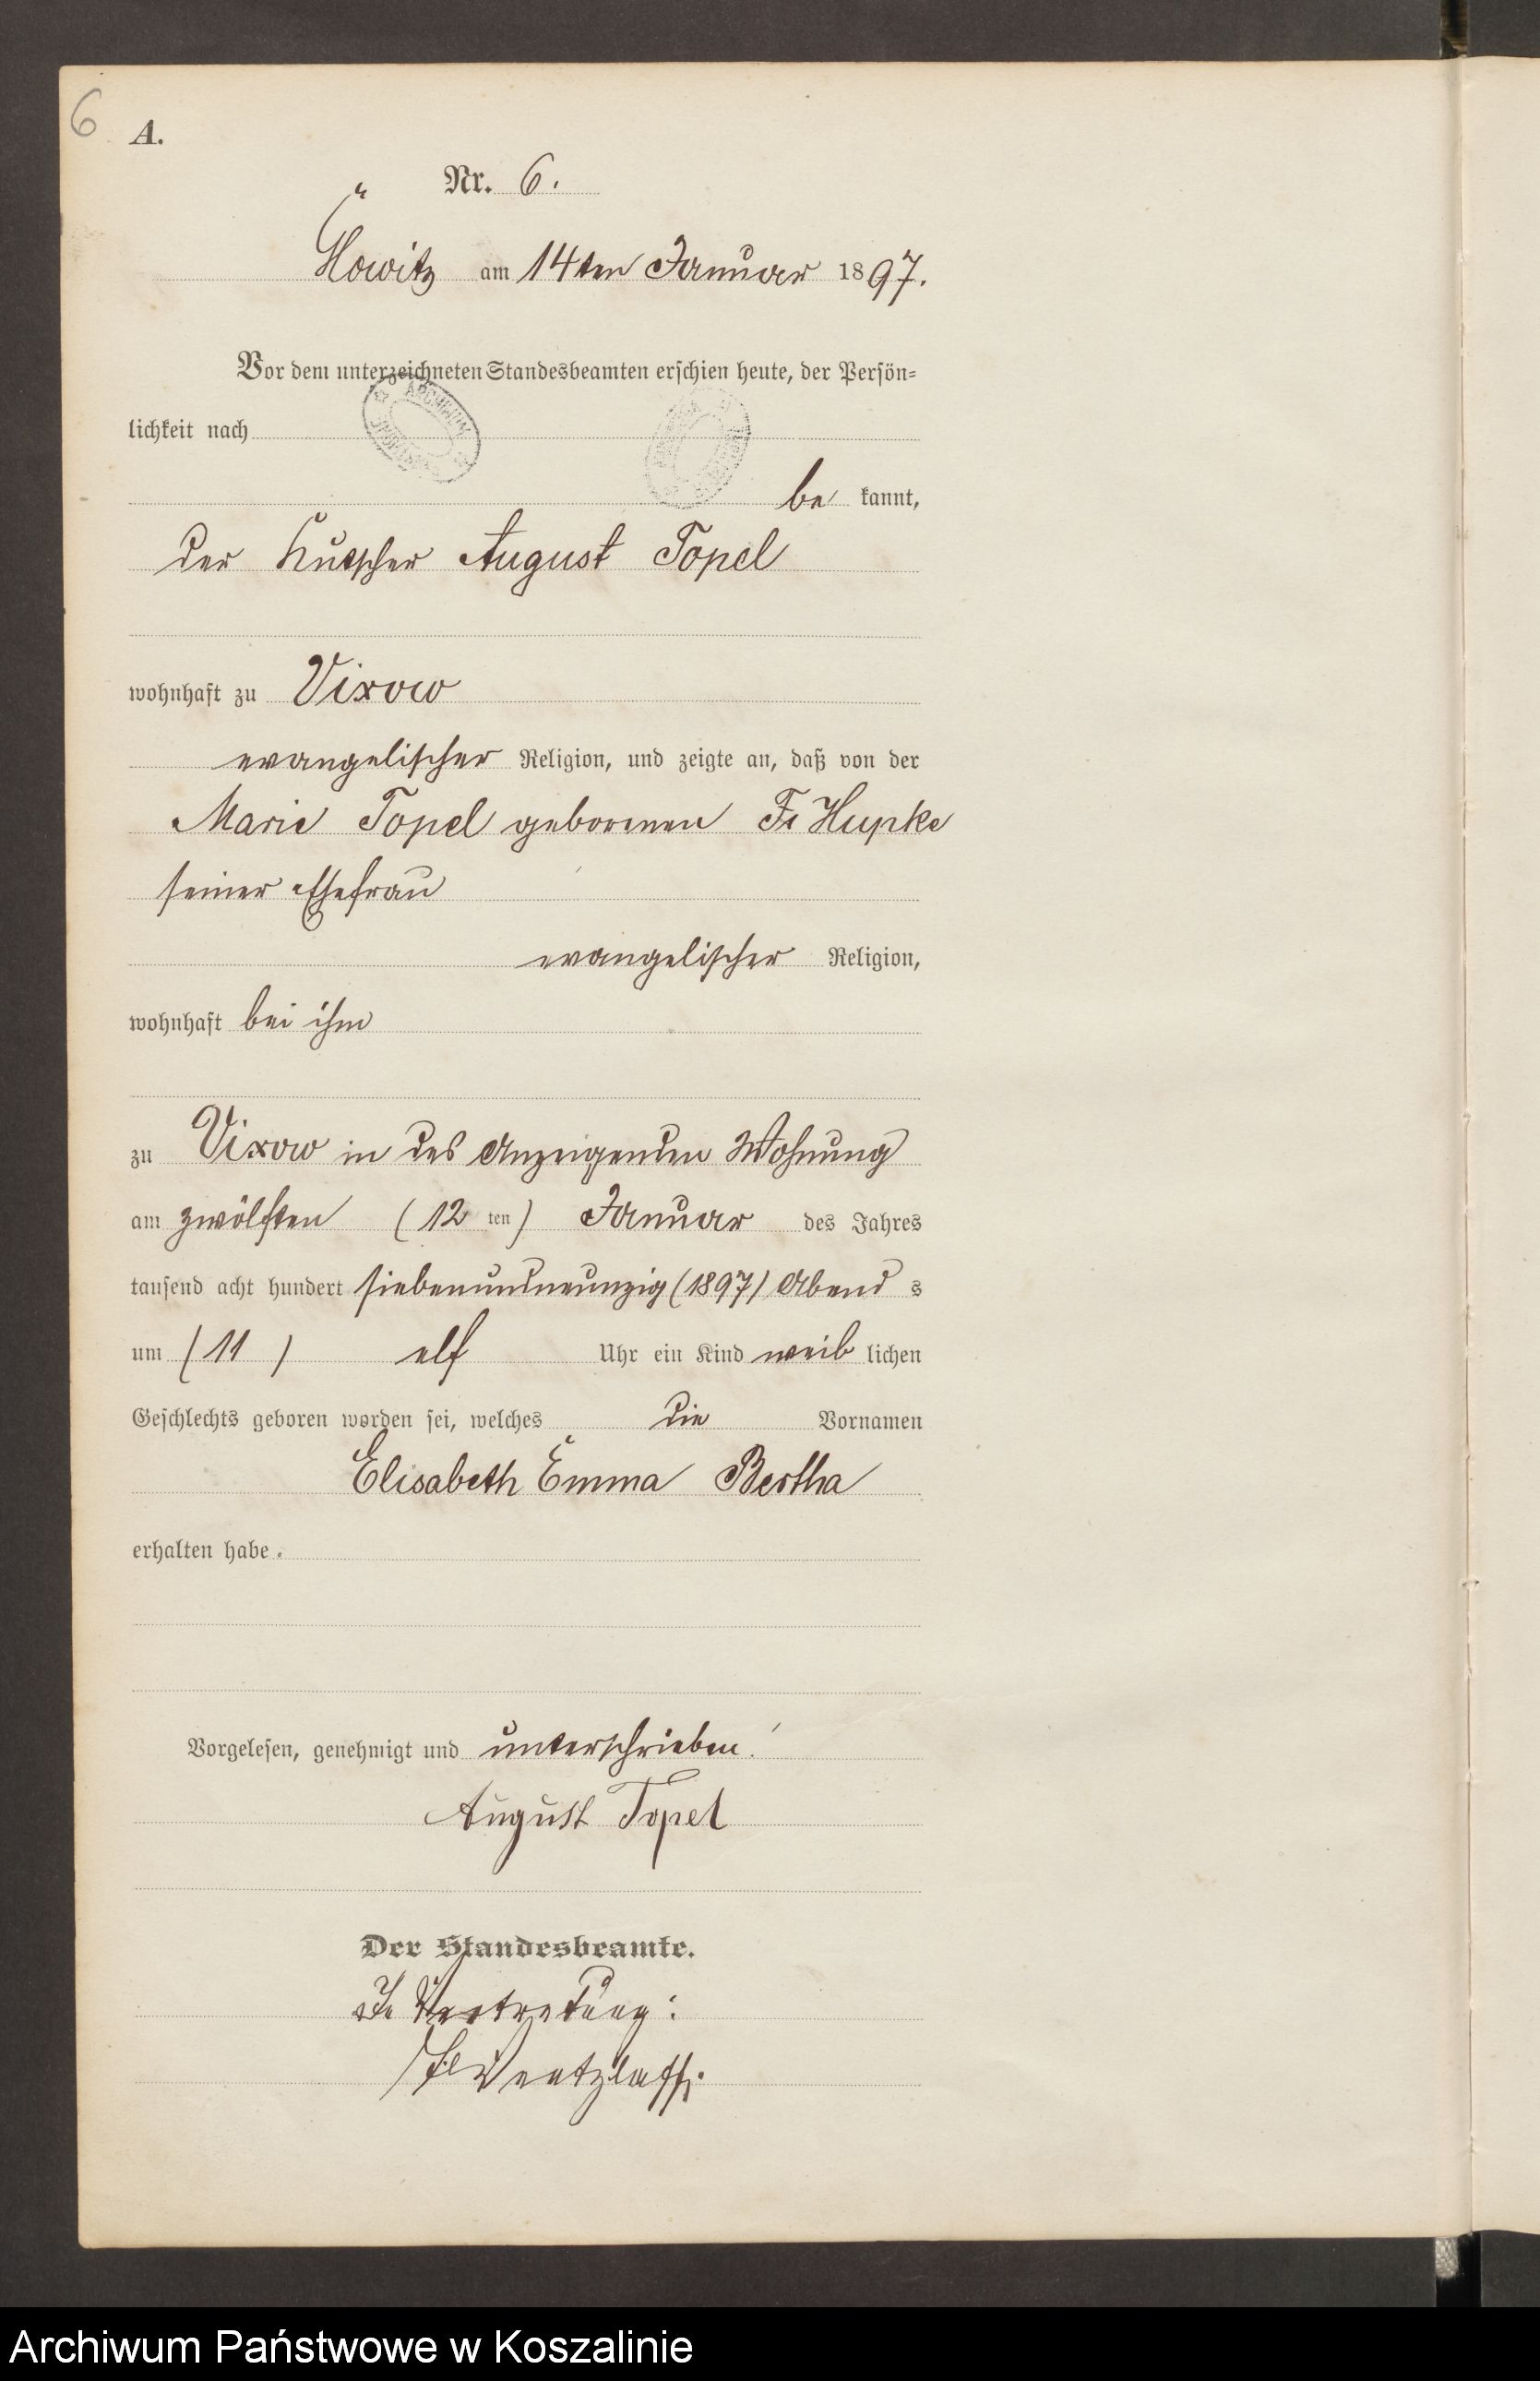 6
A.
Nr. 6.
am 14ten Januar 1897.
Vor dem unterzeichneten Standesbeamten erschien heute, der Persön=
lichkeit nach
be kannt,
der Kutscher August Topel
wohnhaft zu Vixow
evangelischer Religion, und zeigte an, daß von der
Marie Topel geborenen Hupke
seiner Ehefrau
evangelischer Religion,
wohnhaft bei ihm
zu Vixow in des Anzeigenden Wohnung
am zwölften (12 ten) Januar des Jahres
tausend acht hundert siebenundneunzig (1897) Abend s
um (11) elf Uhr ein Kind weib lichen
Geschlechts geboren worden sei, welches die Vornamen
Elisabeth Emma Bertha
erhalten habe.
Vorgelesen, genehmigt und unterschrieben!
August Topel
Der Standesbeamte.
In Vertretung:
Ventzlaff.
Archiwum Państwowe w Koszalinie